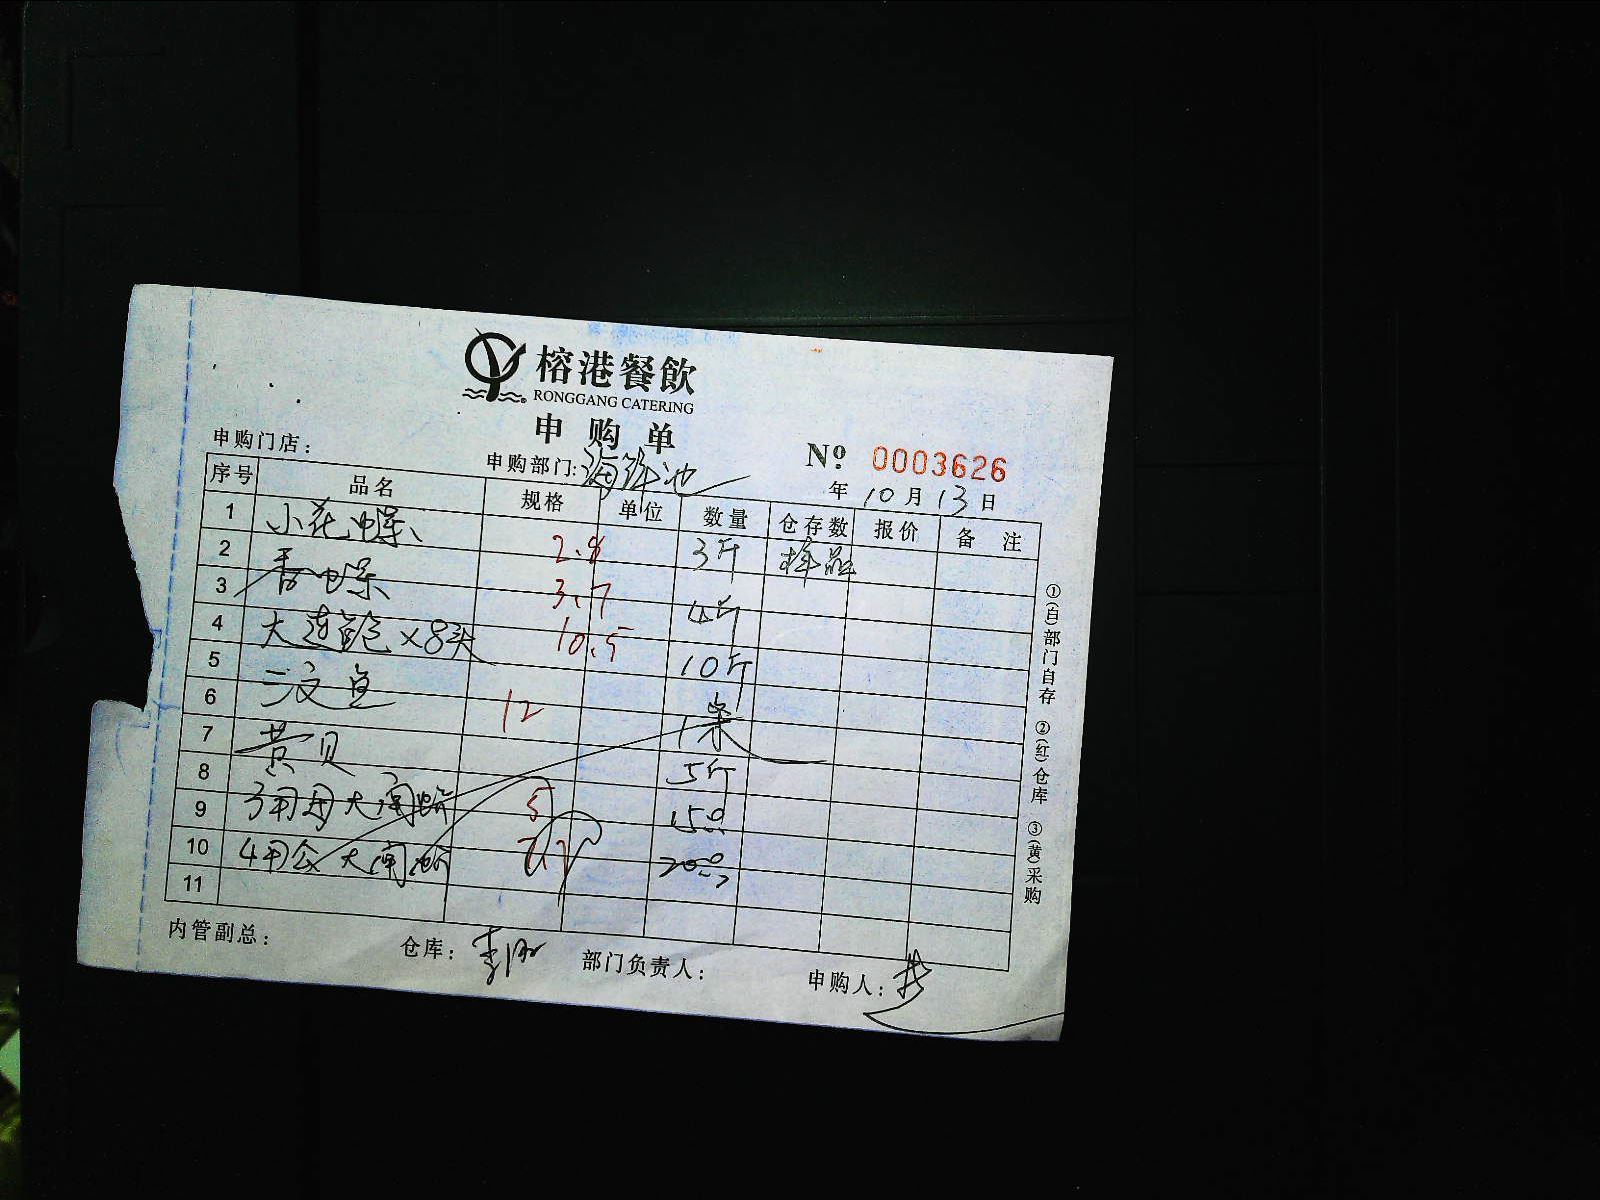 榕港餐飲
RONGGANG CATERING
申购单
申购门店：
申购部门：海鲜池
№ 0003626
年 10 月 13 日
序号 品名 规格 单位 数量 仓存数 报价 备注
1 小花螺 2.8 3斤 样品
2 香螺 3.7 4斤
3 大连鲍×8头 10.5 10斤
4 三文鱼 12 1条
5 黄贝 5斤
6 大闸 5 15只
7 4两公大闸 20只
8
9
10
11
①(白)部门自存 ②(红)仓库 ③(黄)采购
内管副总： 仓库： 部门负责人： 申购人：